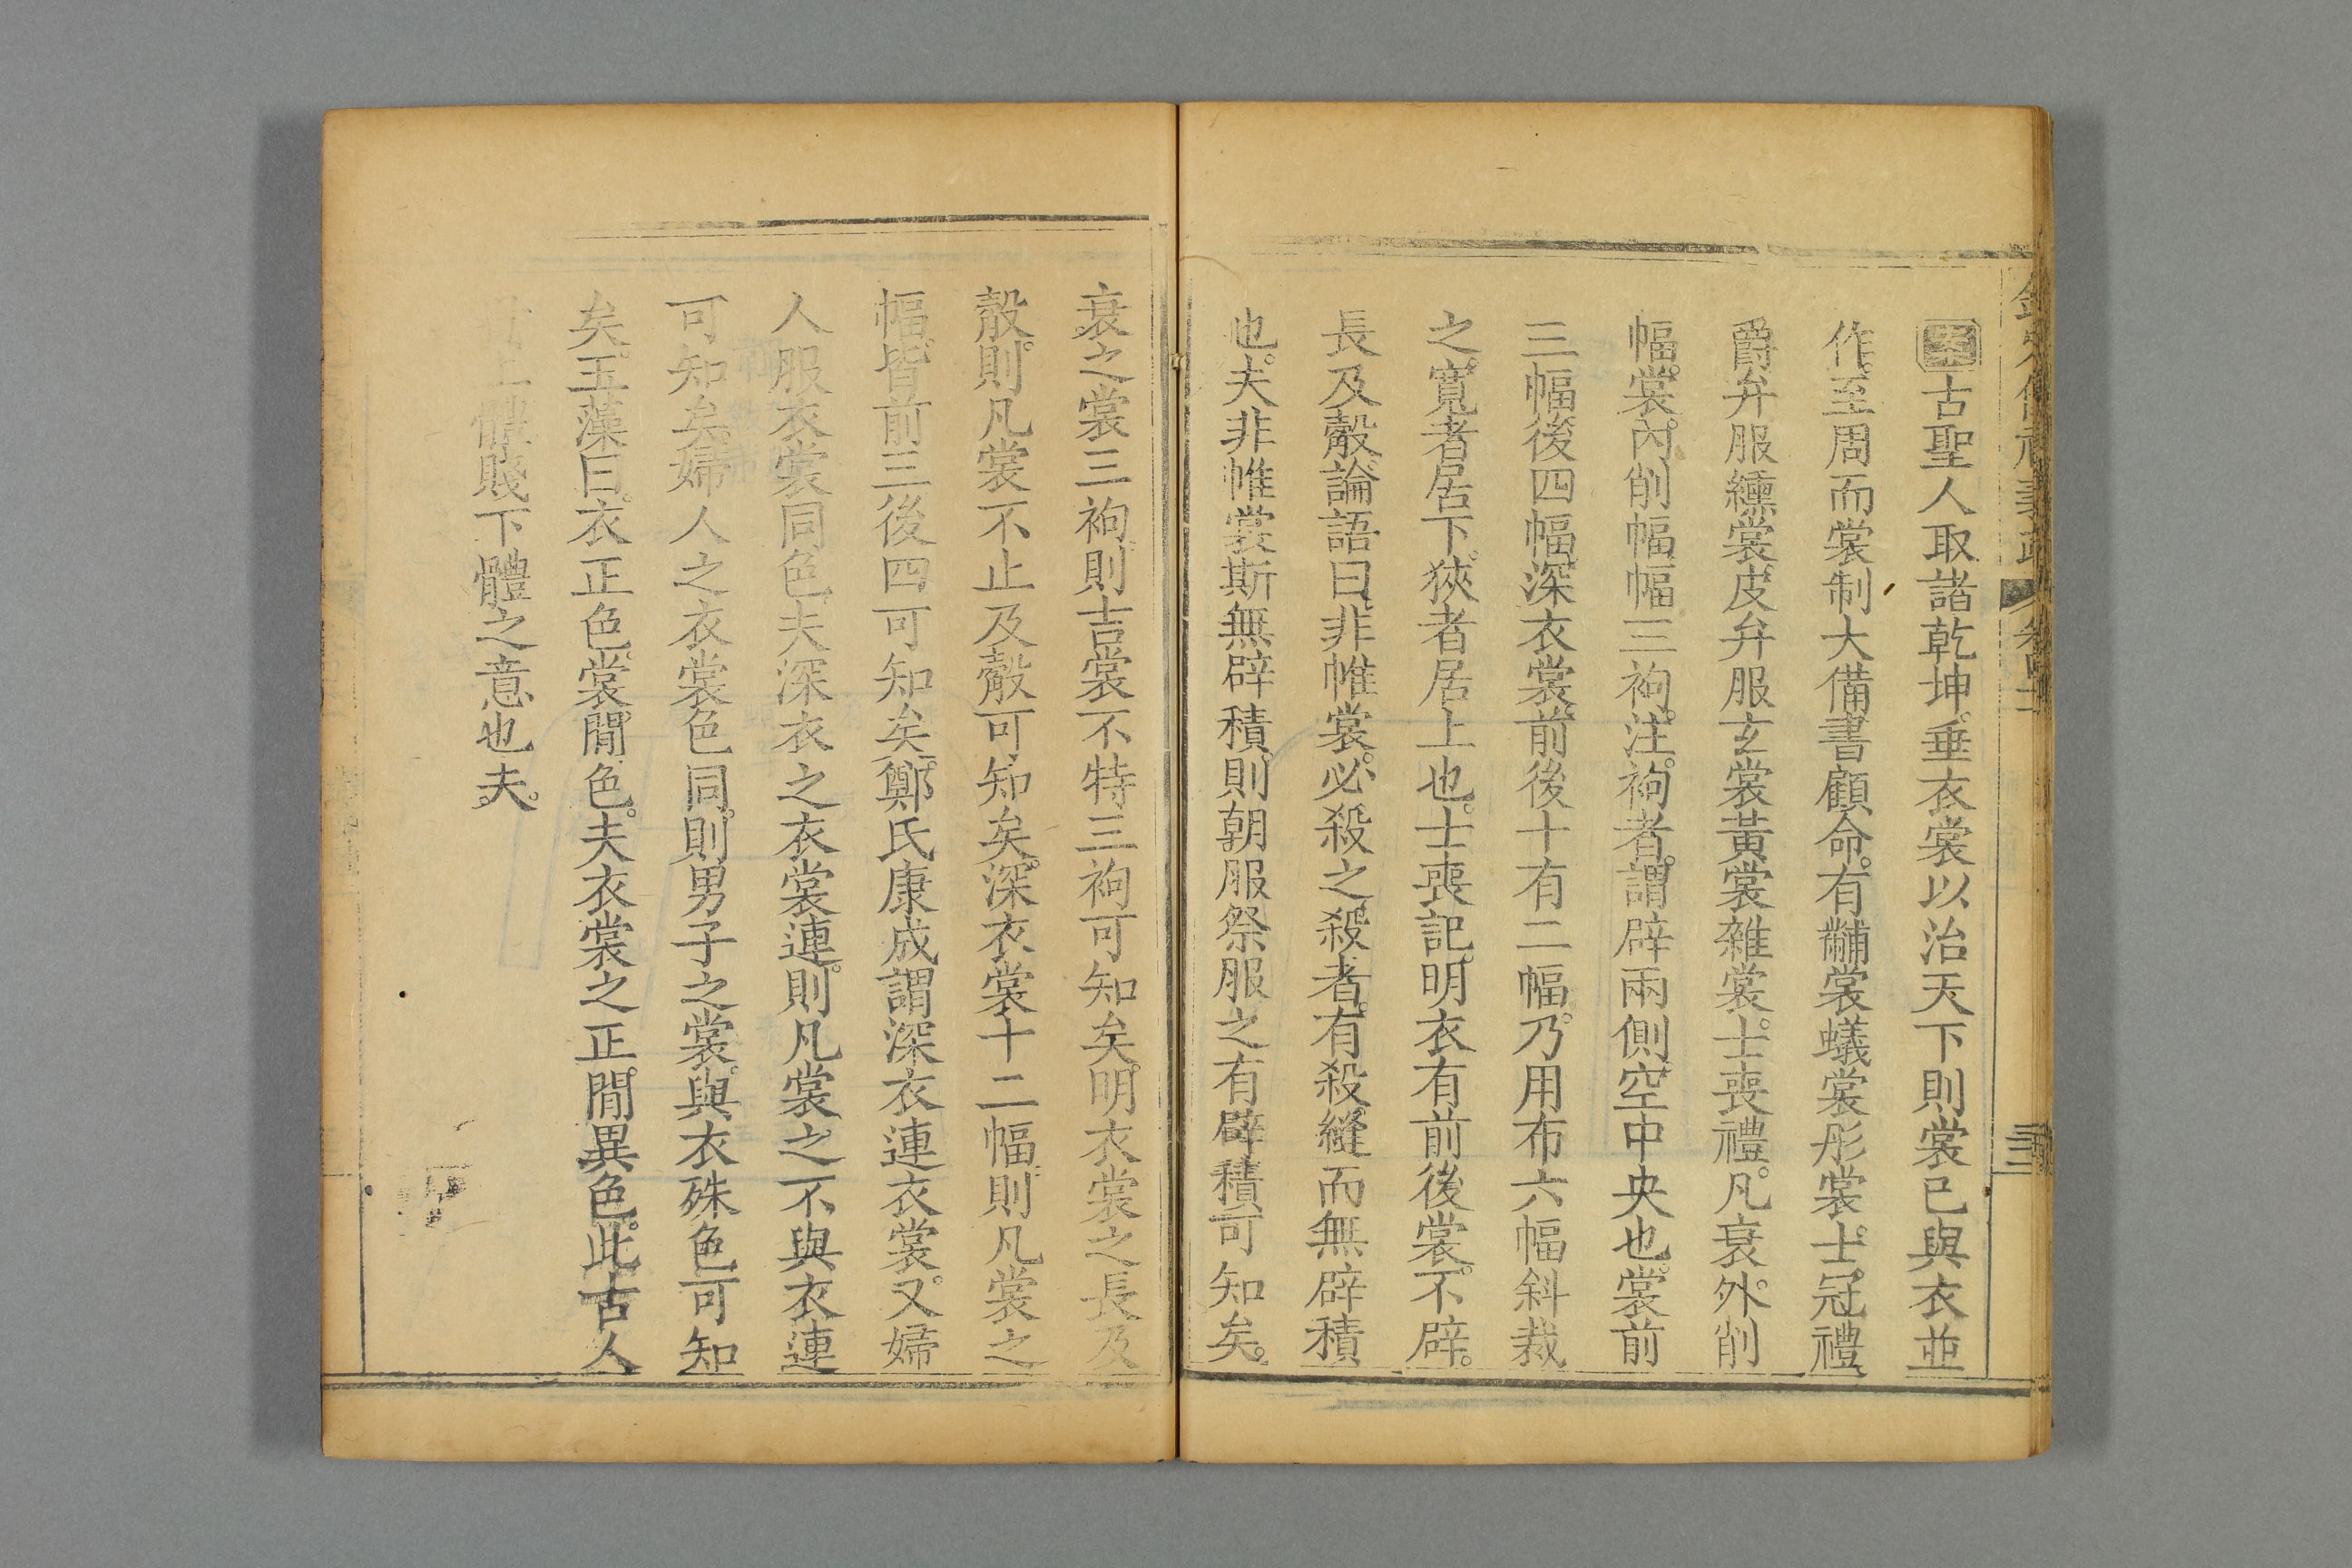 案古聖人取諸乾坤垂衣裳以治天下則裳已與衣並
作至周而裳制大備書顧命有黼裳蟻裳彤裳士冠禮
爵弁服纁裳皮弁服玄裳黃裳雜裳士喪禮凡衰外削
幅裳內削幅幅三袧注袧者謂辟兩側空中央也裳前
三幅後四幅深衣裳前後十有二幅乃用布六幅斜裁
之寬者居下狹者居上也士喪記明衣有前後裳不辟
長及觳論語曰非帷裳必殺之殺者有殺縫而無辟積
也夫非帷裳斯無辟積則朝服祭服之有辟積可知矣
衰之裳三袧則吉裳不特三袧可知矣明衣裳之長及
觳則凡裳不止及觳可知矣深衣裳十二幅則凡裳之
幅皆前三後四可知矣鄭氏康成謂深衣連衣裳又婦
人服衣裳同色夫深衣之衣裳連則凡裳之不與衣連
可知矣婦人之衣裳色同則男子之裳與衣殊色可知
矣玉藻曰衣正色裳閒色夫衣裳之正閒異色此古人
上體賤下體之意也夫